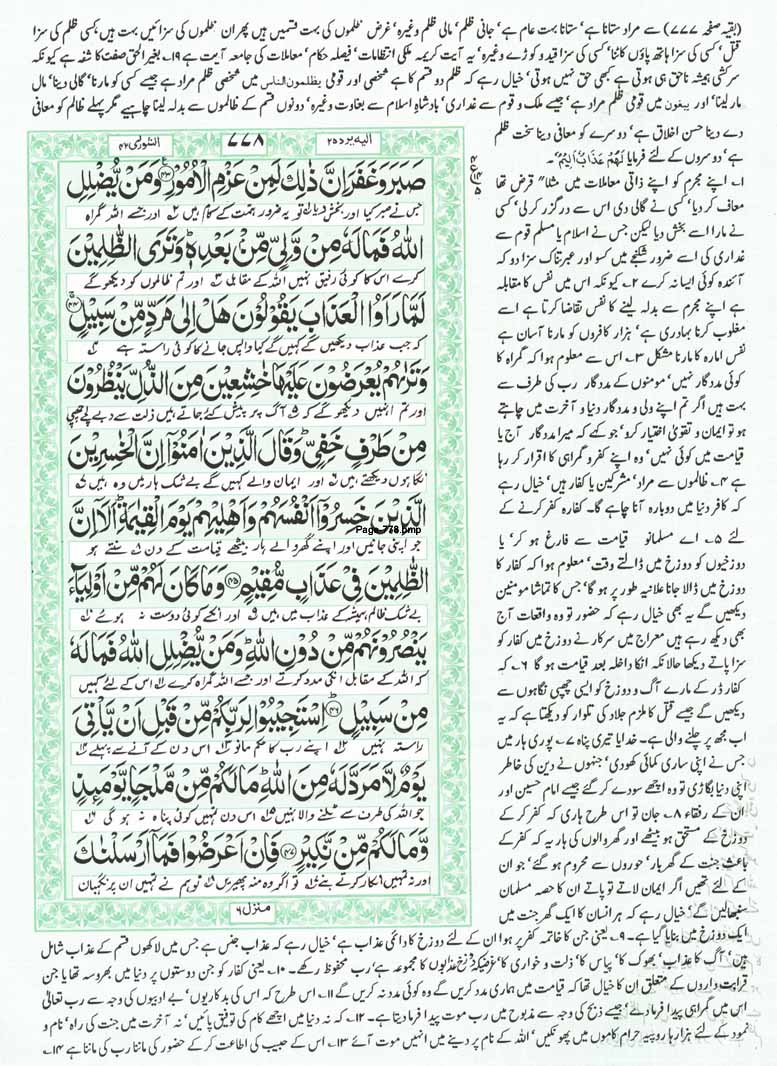 (بقیہ صفحہ ۷۷۷) سے مراد ستانا ہے، ستانا بہت عام ہے، جانی ظلم، مالی ظلم وغیرہ، غرض ظلموں کی بہت قسمیں ہیں پھر ان ظلموں کی سزائیں بہت ہیں، کسی ظلم کی سزا
قتل، کسی کی سزا ہاتھ پاؤں کاٹنا، کسی کی سزا قید و کوڑے وغیرہ، یہ آیت کریمہ ملکی انتظامات، فیصلہ حکام، معاملات کی جامعہ آیت ہے ۱۹۔ بغیر الحق صفت کاشفہ ہے کیونکہ
سرکشی ہمیشہ ناحق ہی ہوتی ہے، کبھی حق نہیں ہوتی، خیال رہے کہ ظلم دو قسم کا ہے شخصی اور قومی یظلمون الناس میں شخصی ظلم مراد ہے جیسے کسی کو مارنا، گالی دینا، مال
مار لینا، اور یبغون میں قومی ظلم مراد ہے، جیسے ملک و قوم سے غداری، بادشاہ اسلام سے بغاوت وغیرہ، دونوں قسم کے ظالموں سے بدلہ لینا چاہیے مگر پہلے ظالم کو معافی
دے دینا حسن اخلاق ہے، دوسرے کو معافی دینا سخت ظلم
ہے، دوسروں کے لئے فرمایا لَهُمْ عَذَابٌ اَلِيْمٌ۔
۱۔ اپنے مجرم کو اپنے ذاتی معاملات میں مثلاً قرض تھا
معاف کر دیا، کسی نے گالی دی اس سے درگزر کر لی، کسی
نے مارا اسے بخش دیا لیکن جس نے اسلام یا مسلم قوم سے
غداری کی اسے ضرور شکنجے میں کسو اور عبرتناک سزا دو کہ
آئندہ کوئی ایسا نہ کرے ۲۔ کیونکہ اس میں نفس کا مقابلہ
ہے اپنے مجرم سے بدلہ لینے کا نفس تقاضا کرتا ہے اسے
مغلوب کرنا بہادری ہے، ہزار کافروں کو مارنا آسان ہے
نفس امارہ کا مارنا مشکل ۳۔ اس سے معلوم ہوا کہ گمراہ کا
کوئی مددگار نہیں، مومنوں کے مددگار رب کی طرف سے
بہت ہیں اگر تم اپنے ولی و مددگار دنیا و آخرت میں چاہتے
ہو تو ایمان و تقویٰ اختیار کرو، جو کہے کہ میرا مددگار آج یا
قیامت میں کوئی نہیں، وہ اپنے کفر و گمراہی کا اقرار کر رہا
ہے ۴۔ ظالموں سے مراد، مشرکین یا کفار ہیں، خیال رہے
کہ کافر دنیا میں دوبارہ آنا چاہے گا۔ کفارہ کفر کرنے کے
لئے ۵۔ اے مسلمانو قیامت سے فارغ ہو کر، یا
دوزخیوں کو دوزخ میں ڈالتے وقت، معلوم ہوا کہ کفار کا
دوزخ میں ڈالا جانا علانیہ طور پر ہو گا، جس کا تماشا مومنین
دیکھیں گے یہ بھی خیال رہے کہ حضور تو وہ واقعات آج
بھی دیکھ رہے ہیں معراج میں سرکار نے دوزخ میں کفار کو
سزا پاتے دیکھا حالانکہ انکا داخلہ بعد قیامت ہو گا ۶۔ کہ
کفار ڈر کے مارے آگ و دوزخ کو ایسی چھپی نگاہوں سے
دیکھیں گے جیسے قتل کا ملزم جلاد کی تلوار کو دیکھتا ہے کہ یہ
اب مجھ پر چلنے والی ہے۔ خدایا تیری پناہ ۷۔ پوری ہار میں
جس نے اپنی ساری کمائی کھودی، جنہوں نے دین کی خاطر
اپنی دنیا بگاڑی تو وہ اچھے سودے کر گئے جیسے امام حسین اور
ان کے رفقاء ۸۔ جان تو اس طرح ہاری کہ کفر کر کے
دوزخ کے مستحق ہو بیٹھے اور گھر والوں کی ہار یہ کہ کفر کے
باعث جنت کے گھر بار، حوروں سے محروم ہو گئے، جو ان
کے لئے تھیں اگر ایمان لاتے تو پاتے ان کا حصہ مسلمان
سنبھالیں گے، خیال رہے کہ ہر انسان کا ایک گھر جنت میں
الیہ یردہ ۲۵
۷۷۸
الشوریٰ ۴۲
صَبَرَ وَغَفَرَ اِنَّ ذٰلِكَ لَمِنْ عَزْمِ الْاُمُوْرِ۝۴۳ وَمَنْ يُّضْلِلِ
جس نے صبر کیا اور بخش دیا تو یہ ضرور ہمت کے کام ہیں اور جسے اللہ گمراہ
اللّٰهُ فَمَا لَهٗ مِنْ وَّلِيٍّ مِّنْۢ بَعْدِهٖ وَتَرَى الظّٰلِمِيْنَ
کرے اس کا کوئی رفیق نہیں اللہ کے مقابل اور تم ظالموں کو دیکھو گے
لَمَّا رَاَوُا الْعَذَابَ يَقُوْلُوْنَ هَلْ اِلٰى مَرَدٍّ مِّنْ سَبِيْلٍ۝۴۴
کہ جب عذاب دیکھیں گے کہیں گے کیا واپس جانے کا کوئی راستہ ہے
وَتَرٰىهُمْ يُعْرَضُوْنَ عَلَيْهَا خٰشِعِيْنَ مِنَ الذُّلِّ يَنْظُرُوْنَ
اور تم انہیں دیکھو گے کہ آگ پر پیش کئے جاتے ہیں ذلت سے دبے لچے چھپی
مِنْ طَرْفٍ خَفِيٍّ وَقَالَ الَّذِيْنَ اٰمَنُوْۤا اِنَّ الْخٰسِرِيْنَ
نگاہوں دیکھتے ہیں اور ایمان والے کہیں گے بے شک ہار میں وہ ہیں
الَّذِيْنَ خَسِرُوْۤا اَنْفُسَهُمْ وَاَهْلِيْهِمْ يَوْمَ الْقِيٰمَةِ اَلَاۤ اِنَّ
Page-778.bmp
جو اپنی جانیں اور اپنے گھر والے ہار بیٹھے قیامت کے دن سنتے ہو
الظّٰلِمِيْنَ فِيْ عَذَابٍ مُّقِيْمٍ۝۴۵ وَمَا كَانَ لَهُمْ مِّنْ اَوْلِيَآءَ
بے شک ظالم ہمیشہ کے عذاب میں ہیں اور انکے کوئی دوست نہ ہوئے
يَنْصُرُوْنَهُمْ مِّنْ دُوْنِ اللّٰهِ وَمَنْ يُّضْلِلِ اللّٰهُ فَمَا لَهٗ
کہ اللہ کے مقابل انکی مدد کرتے اور جسے اللہ گمراہ کرے اس کے لئے کہیں
مِنْ سَبِيْلٍ۝۴۶ اِسْتَجِيْبُوْا لِرَبِّكُمْ مِّنْ قَبْلِ اَنْ يَّاْتِيَ
راستہ نہیں اپنے رب کا حکم مانو اس دن کے آنے سے پہلے
يَوْمٌ لَّا مَرَدَّ لَهٗ مِنَ اللّٰهِ مَا لَكُمْ مِّنْ مَّلْجَاٍ يَّوْمَىِٕذٍ
جو اللہ کی طرف سے ٹلنے والا نہیں اس دن تمہیں کوئی پناہ نہ ہو گی
وَّمَا لَكُمْ مِّنْ نَّكِيْرٍ۝۴۷ فَاِنْ اَعْرَضُوْا فَمَاۤ اَرْسَلْنٰكَ
اور نہ تمہیں انکار کرتے بنے تو اگر وہ منہ پھیریں تو ہم نے تمہیں ان پر نگہبان
منزل ۶
ایک دوزخ میں بنایا گیا ہے۔ ۹۔ یعنی جن کا خاتمہ کفر پر ہوا ان کے لئے دوزخ کا دائمی عذاب ہے، خیال رہے کہ عذاب جنس ہے جس میں لاکھوں قسم کے عذاب شامل
ہیں، آگ کا عذاب، بھوک کا، پیاس کا، ذلت و خواری کا، غرضیکہ دوزخ عذابوں کا مجموعہ ہے، رب محفوظ رکھے۔ ۱۰۔ یعنی کفار کو جن دوستوں پر دنیا میں بھروسہ تھا یا جن
قرابت داروں کے متعلق ان کا خیال تھا کہ قیامت میں ہماری مدد کریں گے وہ کوئی مدد نہ کریں گے ۱۱۔ اس طرح کہ اس کی بدکاریوں، بے ادبیوں کی وجہ سے رب تعالیٰ
اس میں گمراہی پیدا فرما دے، جیسے ذبح کی وجہ سے مذبوح میں رب موت پیدا فرما دیتا ہے۔ ۱۲۔ کہ نہ دنیا میں اچھے کام کی توفیق پائیں، نہ آخرت میں جنت کی راہ، نام و
نمود کے لئے ہزارہا روپیہ حرام کاموں میں پھونکیں، اللہ کے نام پر دینے میں انہیں موت آئے ۱۳۔ اس کے حبیب کی اطاعت کر کے حضور کی ماننا رب کی ماننا ہے ۱۴۔